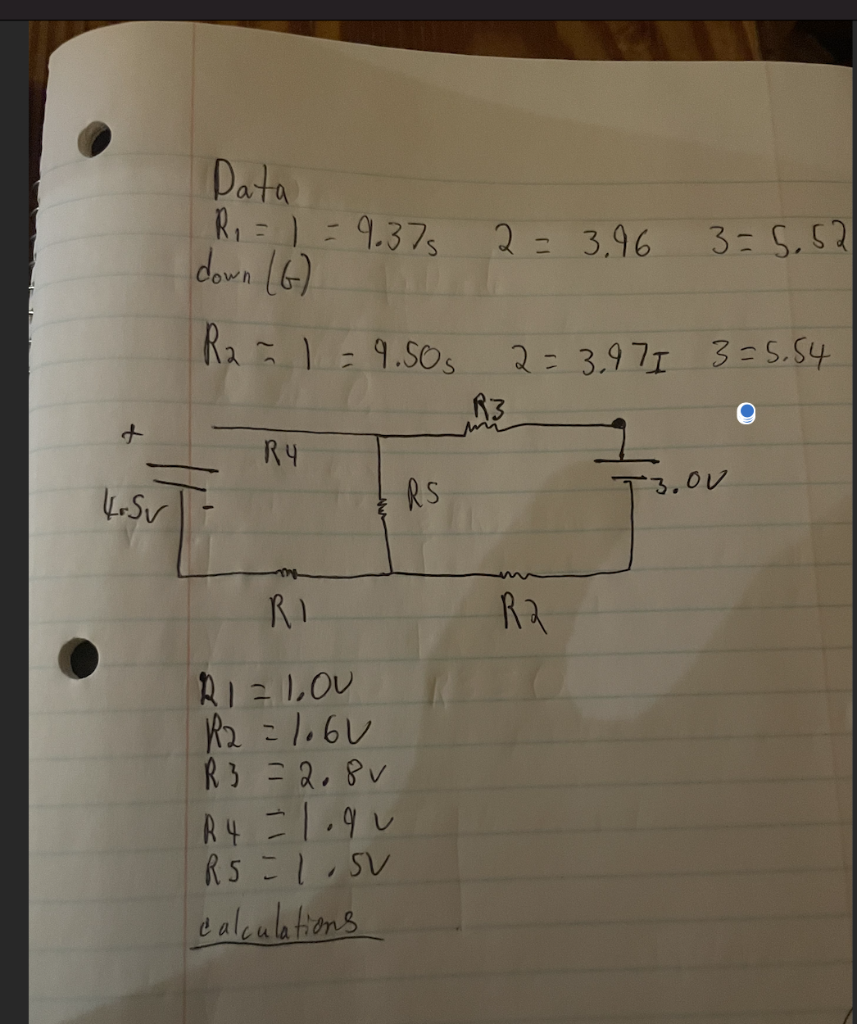 Data
R₁ = 1 = 9.37s 2 = 3.96 3 = 5.52
down (G)
R₂ = 1 = 9.50s 2 = 3.97I 3 = 5.54
R3
+
R4
R5
3.0V
4.5v
-
R1
R2
R1 = 1.0V
R2 = 1.6V
R3 = 2.8v
R4 = 1.9v
R5 = 1.5V
calculations